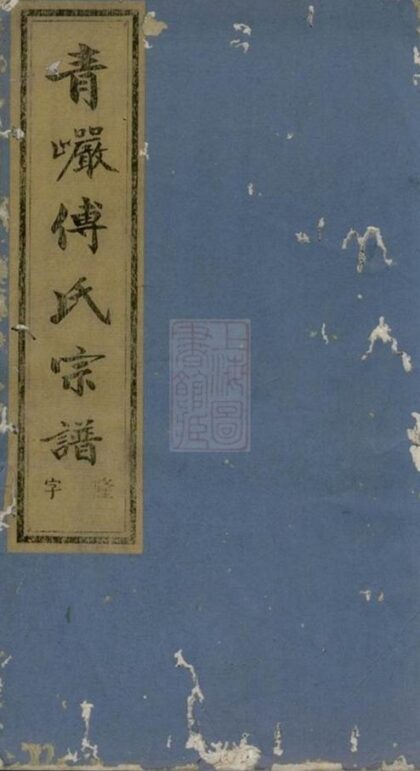 青巗傅氏宗譜
字
上海圖書館藏